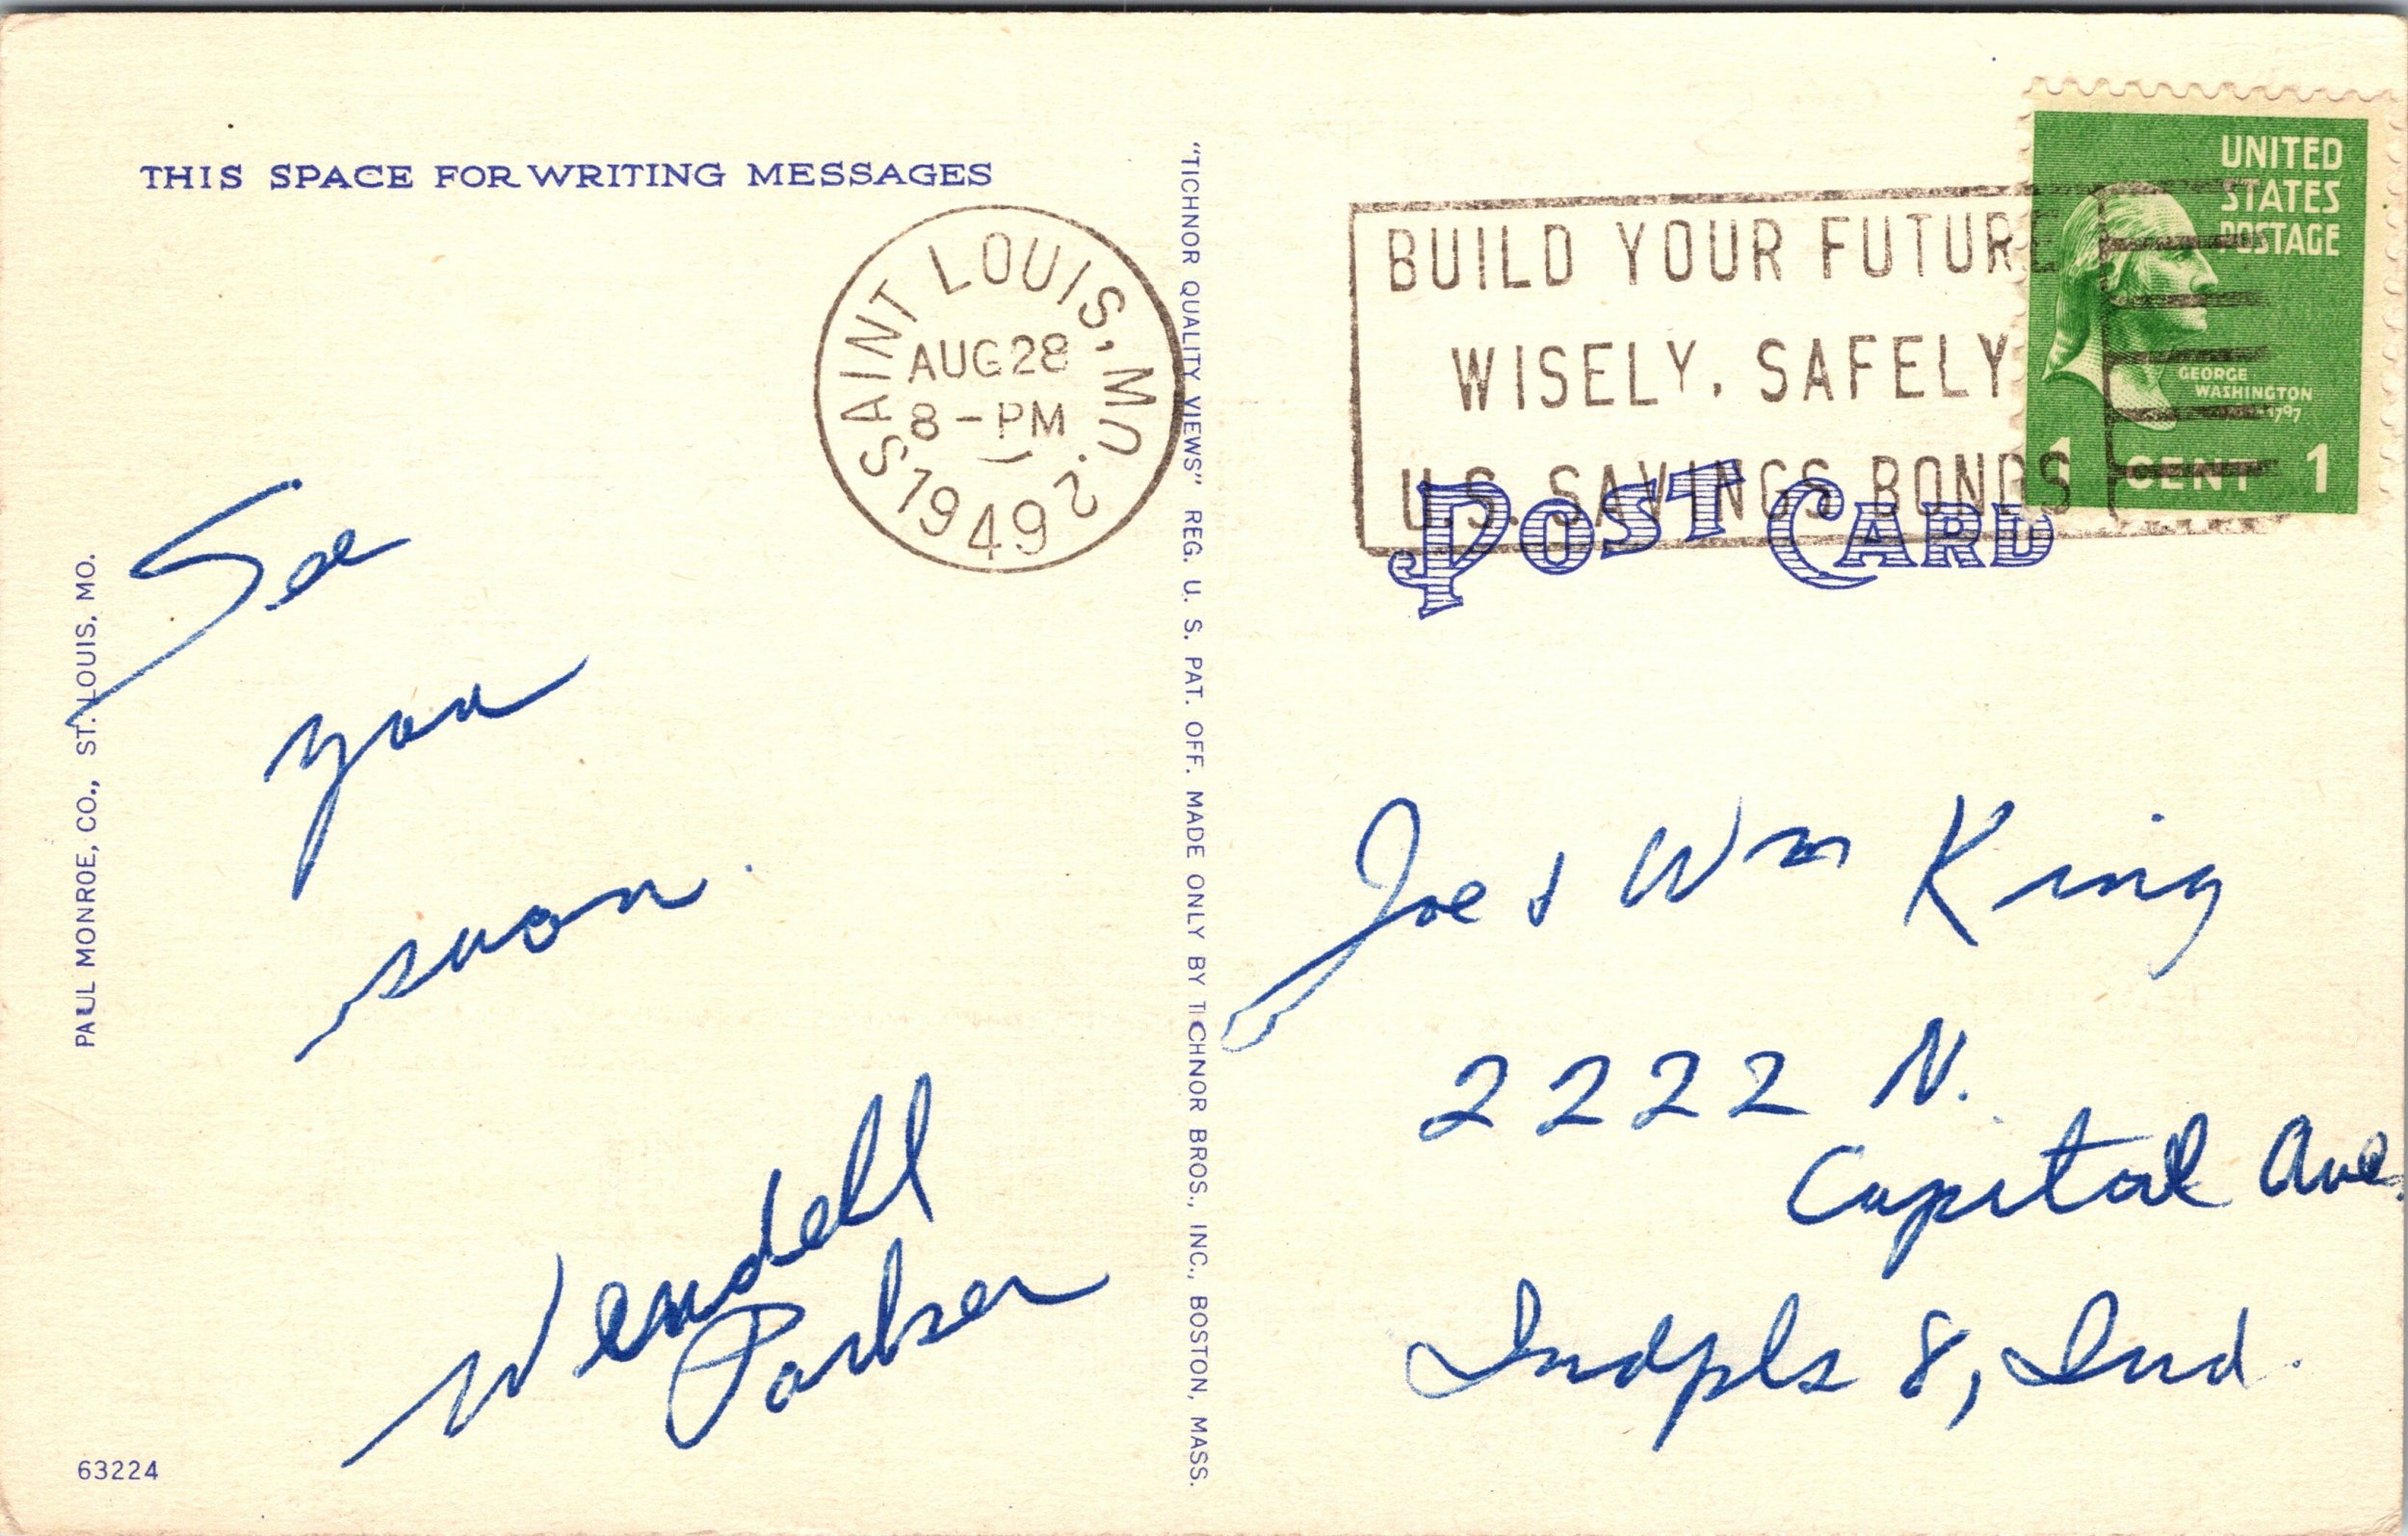 THIS SPACE FOR WRITING MESSAGES
SAINT LOUIS, MO. 2
AUG 28
8 - PM
1949
BUILD YOUR FUTURE
WISELY, SAFELY
U.S. SAVINGS BONDS
UNITED
STATES
POSTAGE
GEORGE
WASHINGTON
1797
1 CENT 1
POST CARD
See
you
soon.
Wendell
Parker
Joe & Wm King
2222 N.
Capital Ave.
Indpls 8, Ind.
PAUL MONROE, CO., ST. LOUIS, MO.
"TICHNOR QUALITY VIEWS" REG. U. S. PAT. OFF. MADE ONLY BY TICHNOR BROS., INC., BOSTON, MASS.
63224